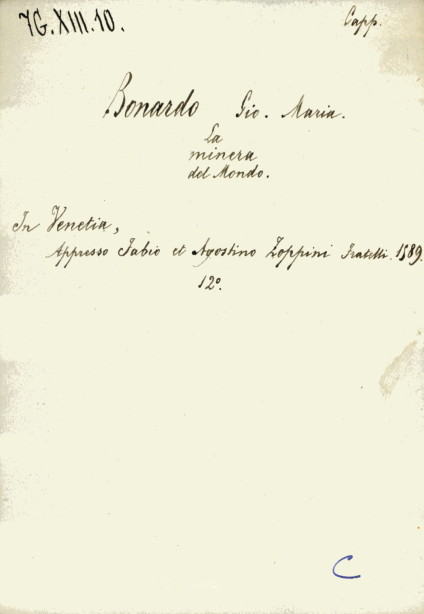 7G.XIII.10.
Capp.
Bonardo Gio. Maria.
La
minera
del Mondo.
In Venetia,
Appresso Fabio et Agostino Zoppini Fratelli. 1589.
12º.
C